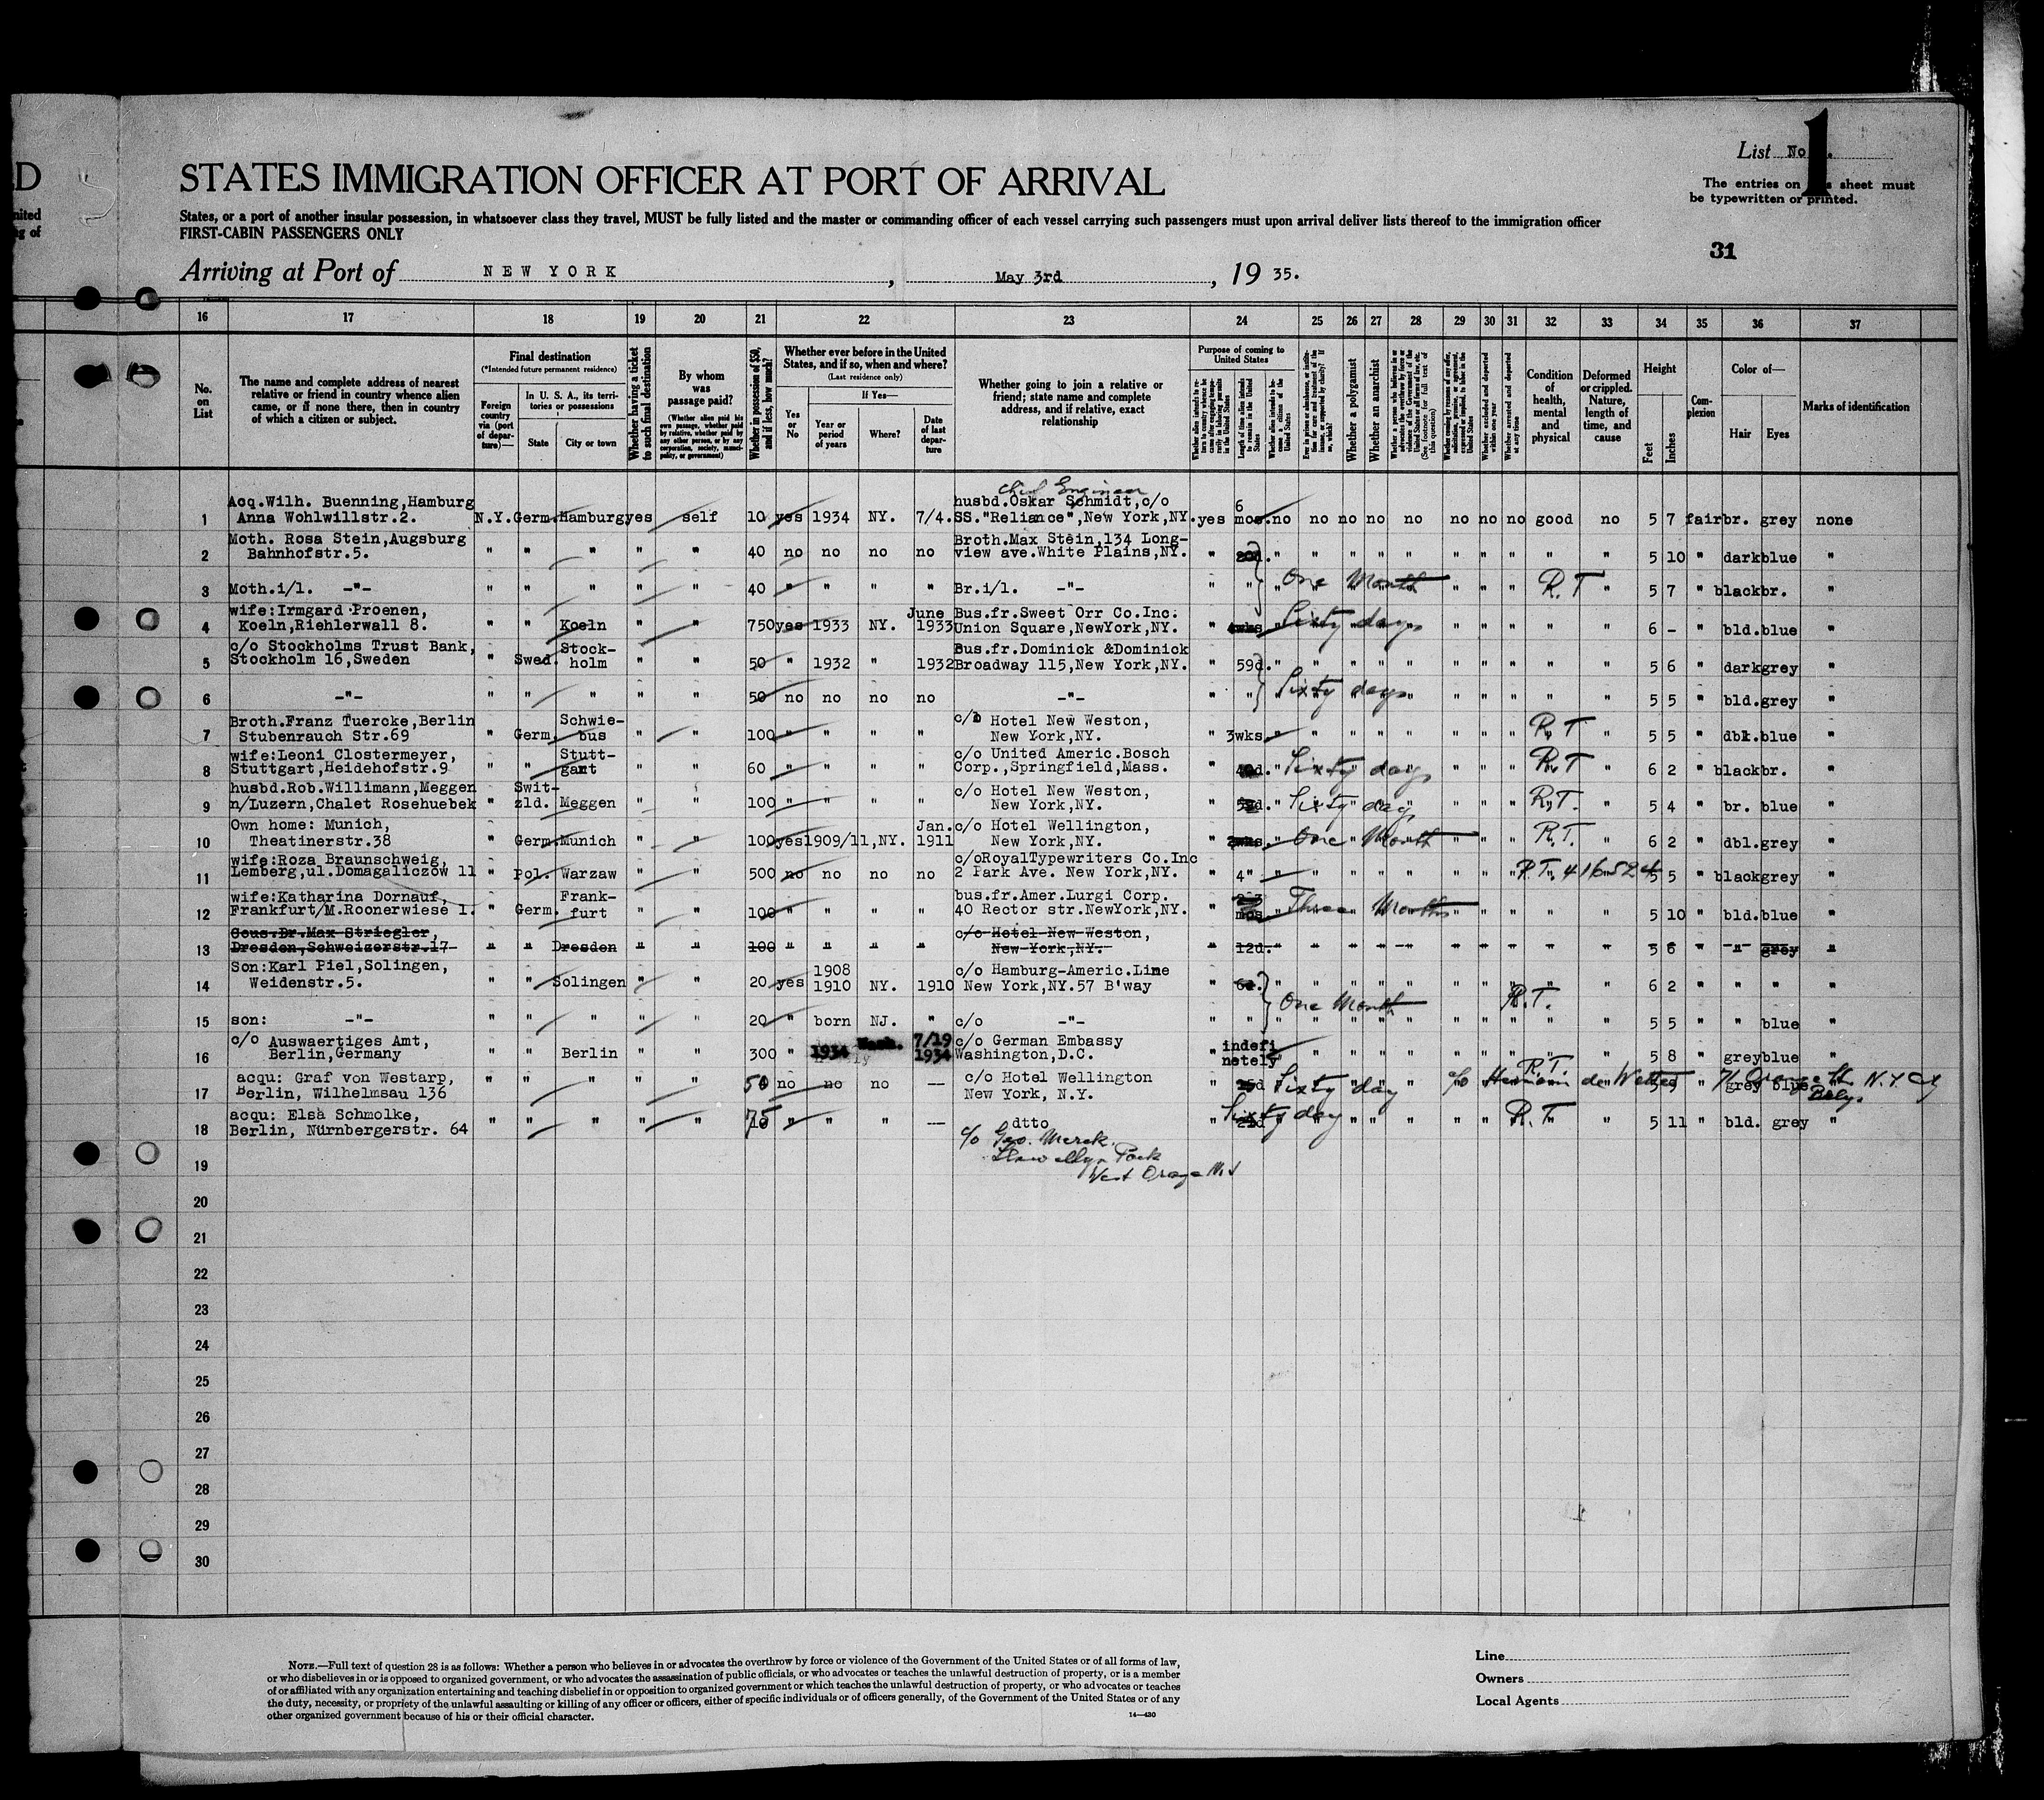 D
nited
ng of
List No 1.
The entries on this sheet must
be typewritten or printed.
STATES IMMIGRATION OFFICER AT PORT OF ARRIVAL
States, or a port of another insular possession, in whatsoever class they travel, MUST be fully listed and the master or commanding officer of each vessel carrying such passengers must upon arrival deliver lists thereof to the immigration officer
FIRST-CABIN PASSENGERS ONLY
31
Arriving at Port of NEW YORK, May 3rd, 19 35.
16 17 18 19 20 21 22 23 24 25 26 27 28 29 30 31 32 33 34 35 36 37
No. on List
The name and complete address of nearest relative or friend in country whence alien came, or if none there, then in country of which a citizen or subject.
Final destination
(*Intended future permanent residence)
Foreign country via (port of departure)—
In U. S. A., its territories or possessions
State
City or town
Whether having a ticket to such final destination
By whom was passage paid?
(Whether alien paid his own passage, whether paid by relative, whether paid by any other person, or by any corporation, society, municipality, or government)
Whether in possession of $50, and if less, how much?
Whether ever before in the United States, and if so, when and where?
(Last residence only)
Yes or No
If Yes—
Year or period of years
Where?
Date of last departure
Whether going to join a relative or friend; state name and complete address, and if relative, exact relationship
Purpose of coming to United States
Length of time alien intends to remain in the United States
Whether alien intends to become a citizen of the United States
Whether a polygamist
Whether an anarchist
(See footnote for full text of this question)
Whether excluded and deported within one year
Whether arrested and deported at any time
Condition of health, mental and physical
Deformed or crippled. Nature, length of time, and cause
Height
Feet
Inches
Complexion
Color of—
Hair
Eyes
Marks of identification
Chief Engineer
Acq.Wilh. Buenning,Hamburg husbd.Oskar Schmidt,c/o 6
1 Anna Wohlwillstr.2. N.Y. Germ. Hamburg yes self 10 yes 1934 NY. 7/4. SS."Reliance",New York,NY. yes mos. no no no no no no no no good no 5 7 fair br. grey none
Moth. Rosa Stein,Augsburg Broth.Max Stein,134 Long-
2 Bahnhofstr.5. " " " " " 40 no no no no view ave.White Plains,NY. " " " " " " " " " " " 5 10 " dark blue "
3 Moth.i/l. -"- " " " " " 40 " " " " Br.i/l. -"- " " One Month R.T " 5 7 " black br. "
wife:Irmgard Proenen, June Bus.fr.Sweet Orr Co.Inc.
4 Koeln,Riehlerwall 8. Koeln " " 750 yes 1933 NY. 1933 Union Square,NewYork,NY. " 4wks Sixty days " " " " " 6 - " bld. blue "
c/o Stockholms Trust Bank, Stock- Bus.fr.Dominick &Dominick
5 Stockholm 16,Sweden " Swed. holm " " 50 " 1932 " 1932 Broadway 115,New York,NY. " 59d. " " " " " " " " " " " 5 6 " dark grey "
6 -"- " " " " " 50 no no no no -"- " " Sixty days " " " " " 5 5 " bld. grey "
Broth.Franz Tuercke,Berlin Schwie- Hotel New Weston,
7 Stubenrauch Str.69 " Germ. bus " " 100 " " " " New York,NY. " 3wks. " " " " " " " " " R.T " 5 5 " dbl. blue "
wife:Leoni Clostermeyer, Stutt- c/o United Americ.Bosch
8 Stuttgart,Heidehofstr.9 " " gart " " 60 " " " " Corp.,Springfield,Mass. " Sixty days " " " R.T " 6 2 " black br. "
husbd.Rob.Willimann,Meggen Swit- c/o Hotel New Weston,
9 n/Luzern,Chalet Rosehuebek " zld. Meggen " " 100 " " " " New York,NY. " Sixty days " " " R.T. " 5 4 " br. blue "
Own home: Munich, Jan. c/o Hotel Wellington,
10 Theatinerstr.38 Germ. Munich " " 100 yes 1909/11, NY. 1911 New York,NY. " One Month " " R.T. " 6 2 " dbl. grey "
wife:Roza Braunschweig, c/oRoyalTypewriters Co.Inc
11 Lemberg,ul.Domagaliczow 11 " Pol. Warzaw " " 500 no no no no 2 Park Ave. New York,NY. " 4" " " " " " " " " R.T. 416524 5 5 " black grey "
wife:Katharina Dornauf, Frank- bus.fr.Amer.Lurgi Corp.
12 Frankfurt/M.Roonerwiese 1. " Germ. furt " " 100 " " " " 40 Rector str.NewYork,NY. " mos Three Months " " " " " 5 10 " bld. blue "
Cous.Dr.Max Striegler, c/o Hotel New Weston,
13 Dresden,Schweizerstr.17 " " Dresden " " 100 " " " " New York,NY. " 12d. " " " " " " " " " " " 5 6 " -"- grey "
Son:Karl Piel,Solingen, 1908 c/o Hamburg-Americ.Line
14 Weidenstr.5. " " Solingen " " 20 yes 1910 NY. 1910 New York,NY.57 B'way " " " " " " " " " " " 6 2 " " " "
One Month R.T.
15 son: -"- " " " " " 20 " born NJ. " c/o -"- " " " " " " " " " " " " " 5 5 " " blue "
c/o Auswaertiges Amt, Wash. 7/19 c/o German Embassy indefi
16 Berlin,Germany " " Berlin " " 300 " 1934 1934 Washington,D.C. netely " " " " " " " " " " 5 8 " grey blue "
acqu: Graf von Westarp, c/o Hotel Wellington R.T.
17 Berlin, Wilhelmsau 136 " " " " " 50 no no no — New York, N.Y. " Sixty day c/o Hermann " grey blue N.Y. City
acqu: Elsa Schmolke, dtto Sixty day
18 Berlin, Nürnbergerstr. 64 " " " " " 75 " " " — " " R.T. " 5 11 " bld. grey "
c/o Geo. Merck.
19 Llewellyn Park
West Orange N.J
20
21
22
23
24
25
26
27
28
29
30
NOTE.—Full text of question 28 is as follows: Whether a person who believes in or advocates the overthrow by force or violence of the Government of the United States or of all forms of law,
or who disbelieves in or is opposed to organized government, or who advocates the assassination of public officials, or who advocates or teaches the unlawful destruction of property, or is a member
of or affiliated with any organization entertaining and teaching disbelief in or opposition to organized government or which teaches the unlawful destruction of property, or who advocates or teaches
the duty, necessity, or propriety of the unlawful assaulting or killing of any officer or officers, either of specific individuals or of officers generally, of the Government of the United States or of any
other organized government because of his or their official character.
14—430
Line
Owners
Local Agents